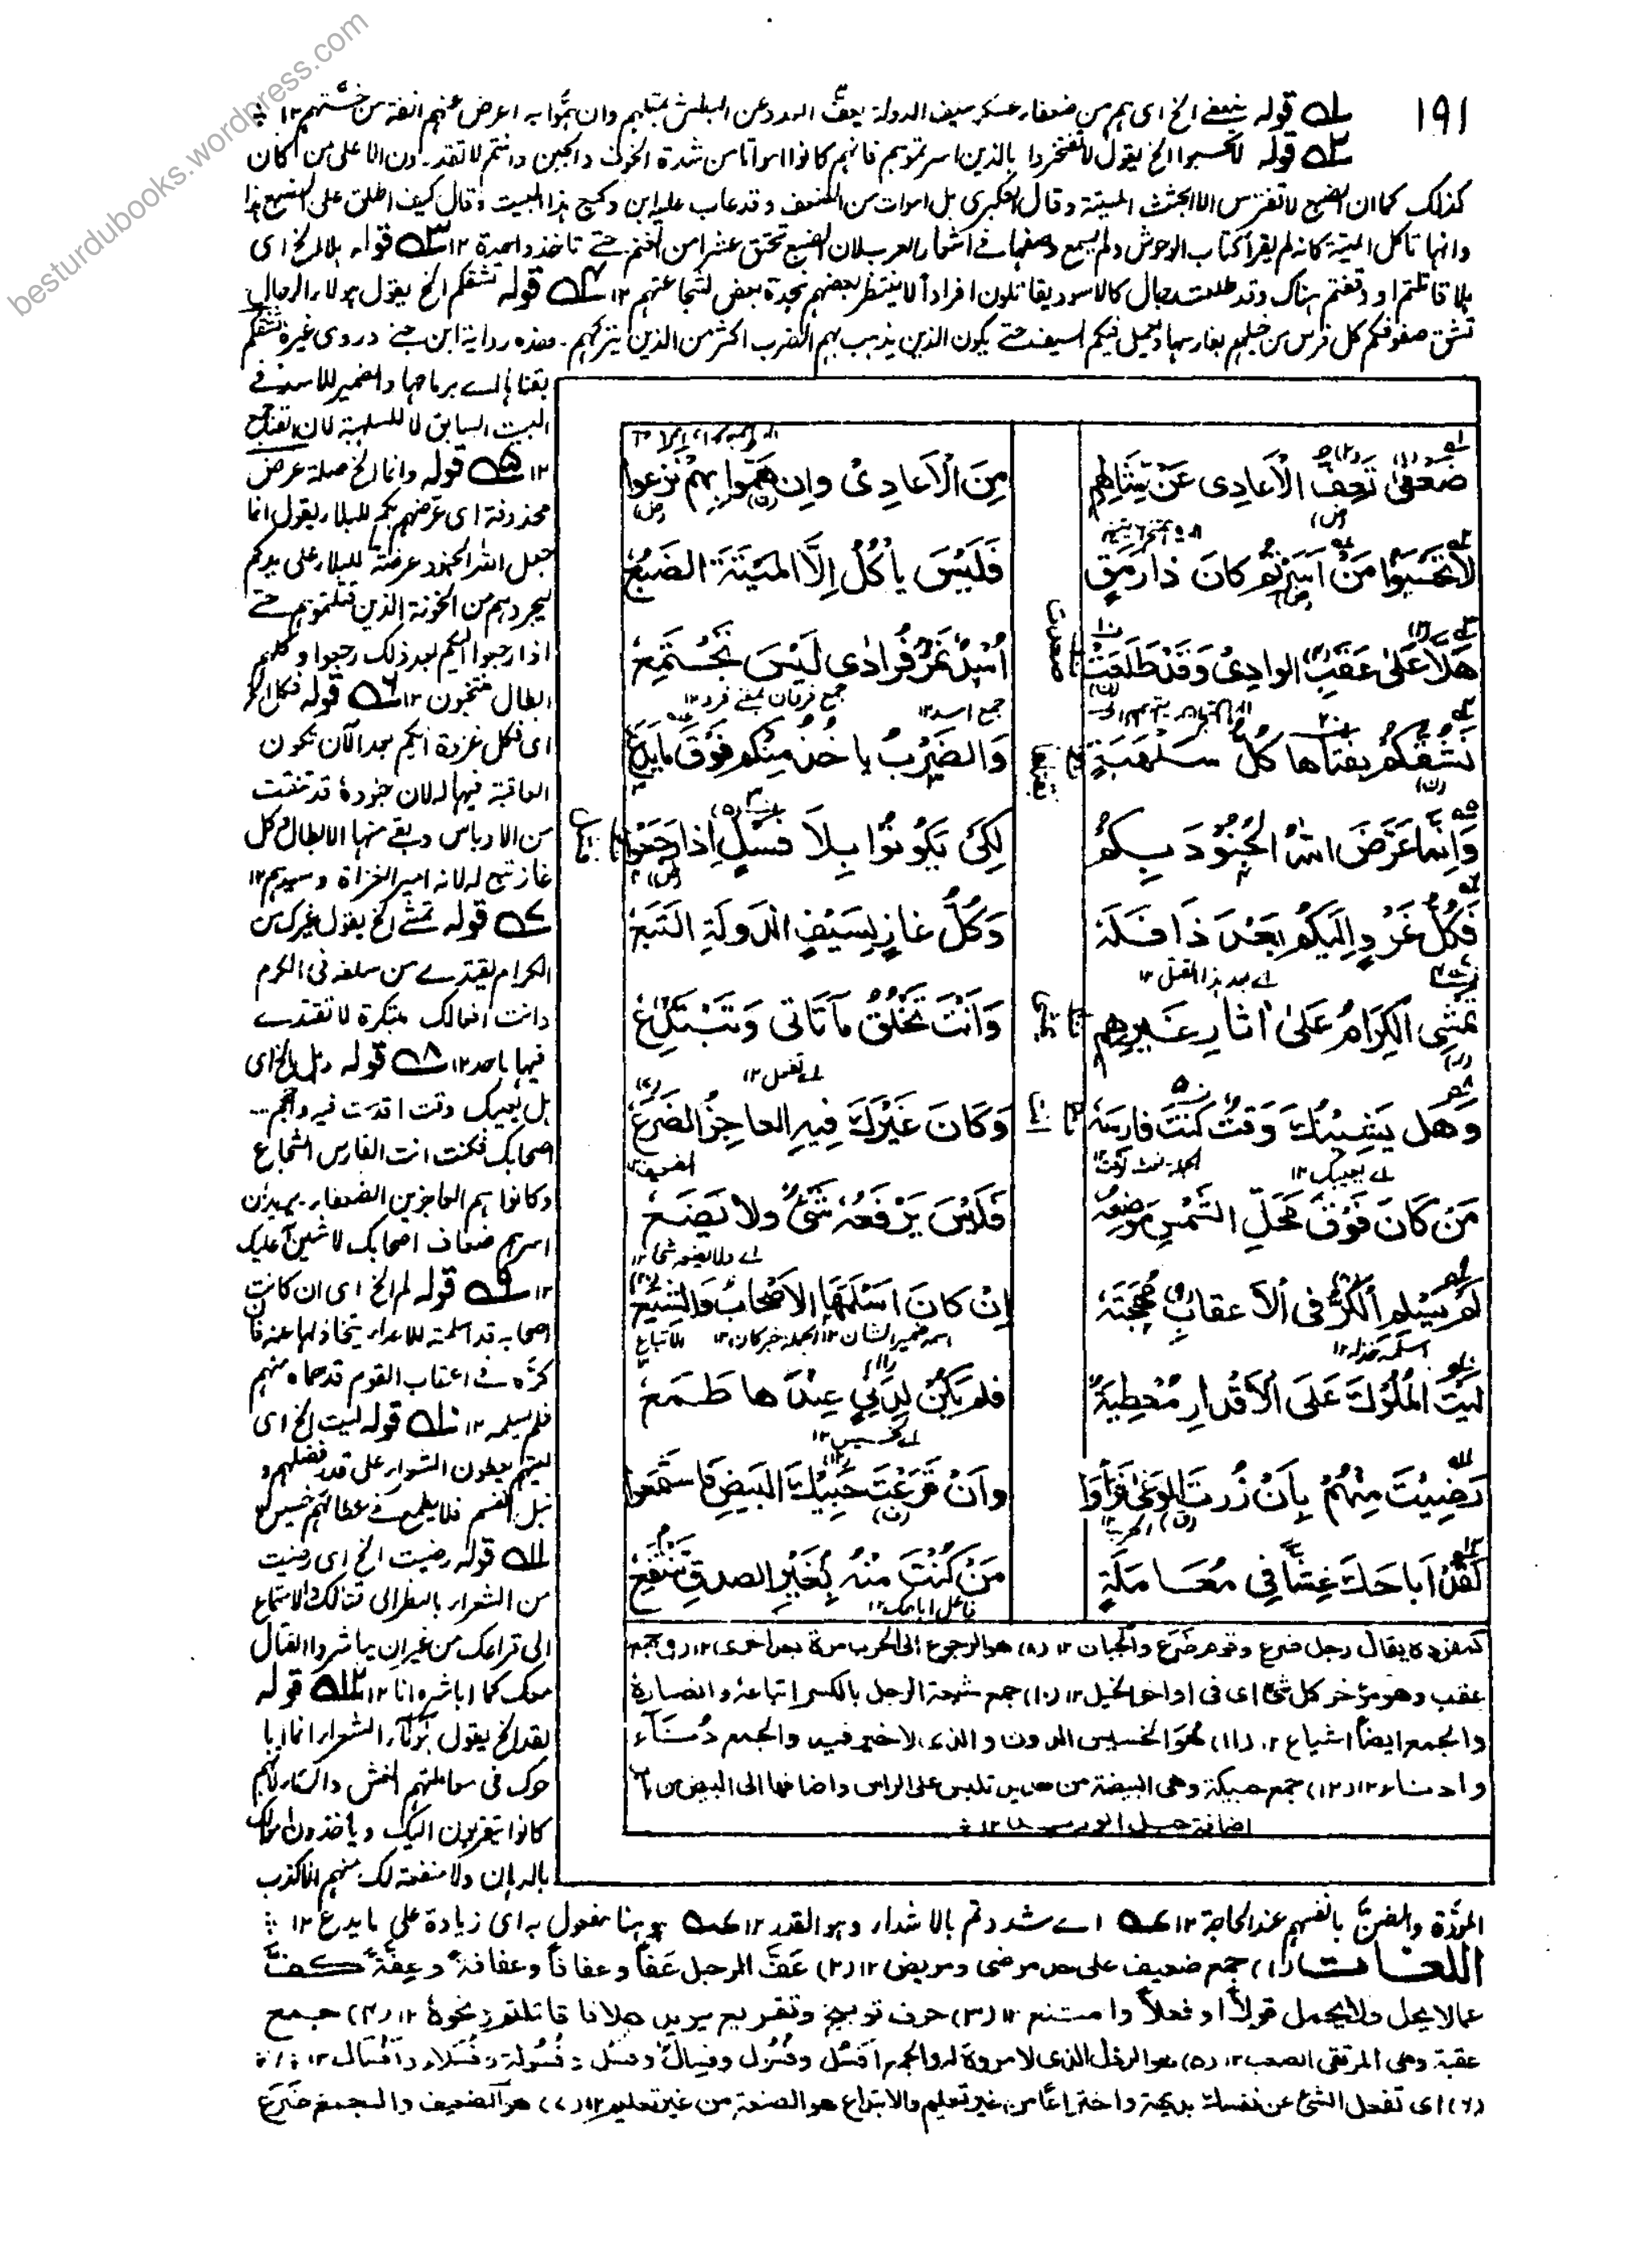 ١٩١
besturdubooks.wordpress.com
١ قوله ضعفى الخ اى هم من ضعفاء عسكر سيف الدولة يعف العدد عن البطش بمثلهم وان هموا به اعرض عنهم انفة من خستهم ١٢
٢ قوله لا تحسبوا الخ يقول لا تفتخروا بالذين اسرتموهم فانهم كانوا امواتا من شدة الخوف والجبن وانتم لا تقدرون الا على من كان
كذلك كما ان الضبع لا تفترس الا الجثث الميتة وقال العكبرى بل اموات من الضعف وقد عاب عليه ابن وكيع هذا البيت وقال كيف اطلق على الضبع هذا
وانها تاكل الميتة كانه لم يقرأ كتاب الوحوش ولم يسمع وصفها فى اشعار العرب لان الضبع تخنق عشرا من الغنم حتى تاخذ واحدة ١٢ ٣ قوله هلا الخ اى
هلا قاتلتم او وقفتم هناك وقد طلعت رجال كالاسود يقاتلون افرادا لا ينتظر بعضهم نجدة بعض لشجاعتهم ١٢ ٤ قوله تشقكم الخ يقول هولاء الرجال
تشق صفوفكم كل فرس من خيلهم بفارسها ويعمل فيكم السيف حتى يكون الذين يذهب بهم الضرب اكثر من الذين يتركهم ـ هذه رواية ابن جنى وروى غيره تشقكم
بقناها اى برماحها والضمير للاسد فى
البيت السابق لا للسلهبة لان القنا جمع
١٢ ٥ قوله وانما الخ صلة عرض
محذوفة اى عرضهم بكم للبلاء يقول انما
جعل الله الجنود عرضة للبلاء على يدكم
ليجردهم من الخونة الذين قتلتموهم حتى
اذا رجعوا اليكم بعد ذلك رجعوا وكلهم
ابطال منتخبون ١٢ ٦ قوله فكل الخ
اى فكل غزوة اليكم بعد الآن تكون
العاقبة فيها له لان جنوده قد تنقت
من الاوباش وبقى منها الابطال وكل
غاز تبع له لانه امير الغزاة وسيدهم ١٢
٧ قوله تمشى الخ يقول غيرك من
الكرام يقتدى من سلفه فى الكرم
وانت افعالك مبتكرة لا تقتدى
فيها باحد ١٢ ٨ قوله وهل الخ اى
هل يعيبك وقت اقدمت فيه واحجم
اصحابك فكنت انت الفارس الشجاع
وكانوا هم العاجزين الضعفاء يريد ان
اسرهم ضعاف اصحابك لا شين عليك
١٢ ٩ قوله لم الخ اى ان كانت
اصحابه قد اسلمته للاعداء بتخاذلها عنه فان
كره فى اعقاب القوم قد حماه منهم
فلم يسلمه ١٢ ١٠ قوله ليت الخ اى
ليتهم يعطون الشعراء على قدر فضلهم و
نبل انفسهم فلا يطمع فى عطائهم خسيس
١١ قوله رضيت الخ اى رضيت
من الشعراء بالنظر الى قتالك والاستماع
الى قراعك من غير ان يباشروا القتال
معك كما اباشره انا ١٢ ١٢ قوله
لقد الخ يقول هؤلاء الشعراء انما ابا
حوك فى معاملتهم الغش لانهم
كانوا يتقربون اليك وياخذون اموالك
ولا منفعة لك منهم الا كذب
ضَعْفى تَعِفُّ الْاَعَادِى عَنْ مِثَالِهِمِ مِنَ الْاَعَادِىْ وَاِنْ هَمُّوا بِهِمْ نَزَعوا
لَا تَحْسَبُوا مَنْ اَسَرْتُمْ كَانَ ذَا رَمَقٍ فَلَيْسَ يَأكُلُ اِلَّا المَيْتَةَ الضَبُعُ
هَلَّا عَلىٰ عَقَبِ الوادِىْ وَقَدْ طَلَعَتْ اُسْدٌ تَمُرُّ فُرَادٰى لَيْسَ تَجْتَمِعُ
تَشُقُّكُمْ بِقَناها كُلُّ سَلْهَبَةٍ وَالضَرْبُ يَاخُذُ مِنْكُمْ فَوْقَ مَا يَدَعُ
وَاِنَّمَا عَرَّضَ اللهُ الْجُنُوْدَ بِكُمْ لِكَىْ يَكُوْنُوْا بِلَا فَسْلٍ اِذَا رَجَعُوْا
فَكُلُّ غَزْوٍ اِلَيْكُمْ بَعْدَ ذَا فَلَهٗ وَكُلُّ غَازٍ لِسَيْفِ الدَّوْلَةِ التَبَعُ
تَمْشِى الكِرَامُ عَلىٰ اٰثَارِ غَيْرِهِمِ وَاَنْتَ تَخْلُقُ مَا تَاتِى وَتَبْتَدِعُ
وَهَل يَشِيْنُكَ وَقْتٌ كُنْتَ فَارِسَهٗ وَكَانَ غَيْرَكَ فِيهِ العَاجِزُ الضَرَعُ
مَنْ كَانَ فَوْقَ مَحَلِّ الشَّمْسِ مَوْضِعُهٗ فَلَيْسَ يَرْفَعُهٗ شَىْءٌ وَلَا يَضَعُ
لَمْ يُسْلِمِ الْكَرُّ فِى الْاَعْقَابِ مُهْجَتَهٗ اِنْ كَانَ اَسْلَمَهَا الْاَصْحَابُ وَالشِّيَعُ
لَيْتَ الْمُلُوْكَ عَلَى الْاَقْدَارِ مُعْطِيَةٌ فَلَمْ يَكُنْ لِدَنِىٍّ عِنْدَهَا طَمَعُ
رَضِيْتَ مِنْهُمْ بِاَنْ زُرْتَ الْوَغٰى فَرَأَوْا وَاَنْ قَرَعْتَ حَبِيْكَ البَيْضِ فَاسْتَمَعُوا
لَقَدْ اَبَاحَكَ غِشًّا فِى مُعَامَلَةٍ مَنْ كُنْتَ مِنْهُ بِغَيْرِ الصِدقِ تَنْتَفِعُ
كمفرده يقال رجل ضرع وقوم ضَرَع والجبان ١٢ (٨) هو الرجوع الى الحرب مرة بعد اخرى ١٢ (٩) جمع
عقب وهو مؤخر كل شئ اى فى اواخر الخيل ١٢ (١٠) جمع شيعة الرجل بالكسر اتباعه وانصاره
والجمع ايضاً اشياع ١٢ (١١) هو الخسيس الدون والذى لا خير فيه والجمع دُنَآء
وادناء ١٢ (١٢) جمع حبيكة وهى البيضة من حديد تلبس على الراس واضافها الى البيض من
اضافة حبل الوريد ١٢
المودة والضن بانفسهم عند الحاجة ١٢ اى شددتم بالاشدار وهو القدر ١٢ هو هنا مفعول به اى زيادة على ما يدع ١٢
اللغات (١) جمع ضعيف على حد مرضى ومريض ١٢ (٢) عَفَّ الرجل عَفاً وعفافاً وعفافةً وعِفَّةً كفَّ
عما لا يحل ولا يجمل قولاً او فعلاً وامتنع ١٢ (٣) حرف توبيخ وتقريع يريد هلا قاتلتم ونحوه ١٢ (٤) جمع
عقبة وهى المرتقى الصعب ١٢ (٥) هو الرذل الذى لا مروة له والجمع اَفسُل وفُسُول وفِسال وفُسُل وفُسُولة وفُسَلاء وافسال ١٢
(٦) اى تفعل الشئ عن نفسك بديهة واختراعاً من غير تعليم والابتداع هو الصنعة من غير تعليم ١٢ (٧) هو الضعيف والجمع ضَرَع